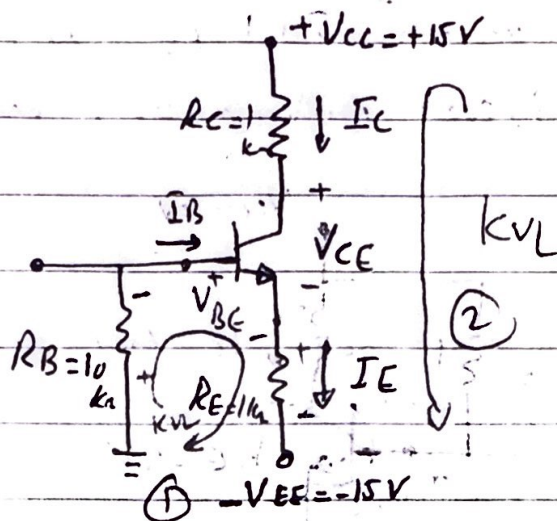 + VCC = +15V
RC=1
k
IC
+
IB
VCE
KVL
+
VBE
-
-
-
2
RB=10
kΩ
+
KVL
RE=1kΩ
+
IE
-
1
-VEE = -15V